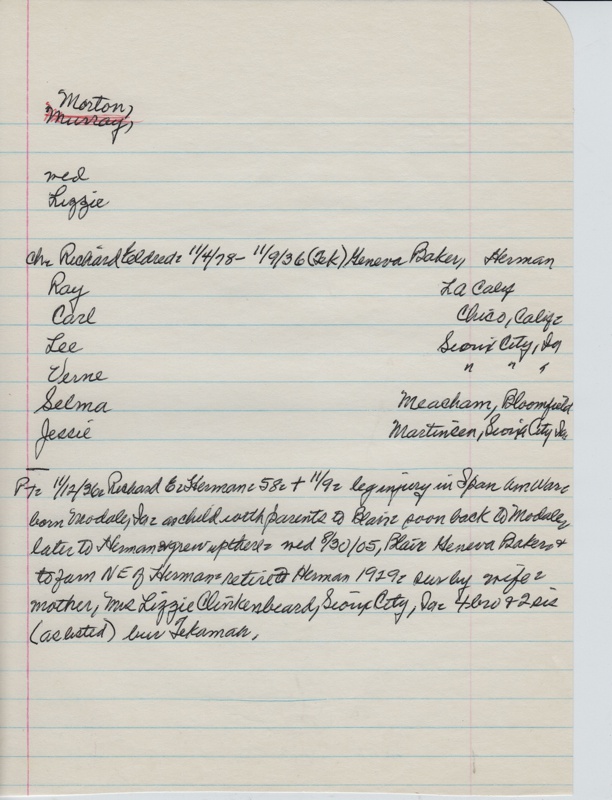 Morton,
Murray,
med
Lizzie
ch= Richard Eldred= 11/4/78- 11/9/36 (Tek) Geneva Baker, Herman
Ray LA Calif
Carl Chico, Calif=
Lee Sioux City, Ia
Verne " " "
Selma Meacham, Bloomfield
Jessie Martinsen, Sioux City Ia=
Pt= 11/12/36= Richard E= Herman= 58= + 11/9= leg injury in Span Am War=
born Modale, Ia= as child with parents to Blair= soon back to Modale,
later to Herman & grew up there= med 8/30/05, Blair Geneva Baker= &
to farm NE of Herman= retired Herman 1929= sur by wife=
mother, Mrs Lizzie Clinkenbeard, Sioux City, Ia= 4 bro & 2 sis
(as listed) bur Tekamah,